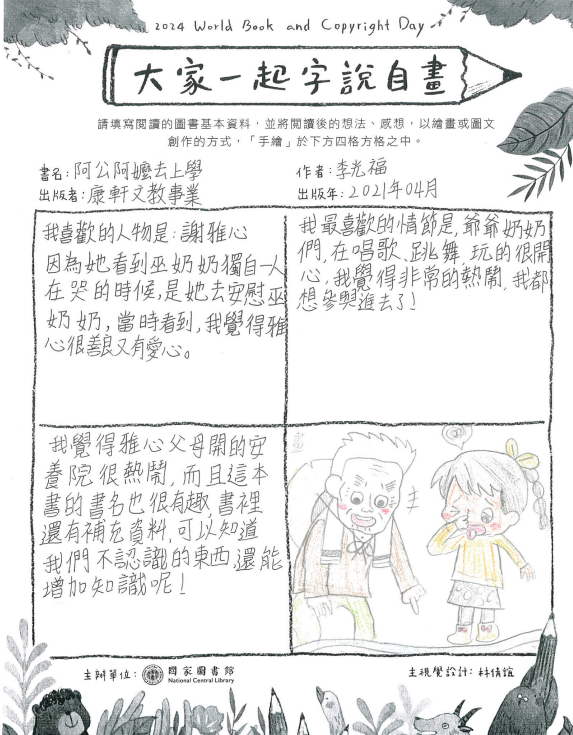 2024 World Book and Copyright Day
大家一起字說自畫
請填寫閱讀的圖書基本資料，並將閱讀後的想法、感想，以繪畫或圖文
創作的方式，「手繪」於下方四格方格之中。
書名：阿公阿嬤去上學
作者：李光福
出版者：康軒文教事業
出版年：2021年04月
我喜歡的人物是：謝雅心
因為她看到巫奶奶獨自一人
在哭的時候，是她去安慰巫
奶奶，當時看到，我覺得雅
心很善良又有愛心。
我最喜歡的情節是，爺爺奶奶
們，在唱歌、跳舞、玩的很開
心，我覺得非常的熱鬧，我都
想參與進去了！
我覺得雅心父母開的安
養院很熱鬧，而且這本
書的書名也很有趣，書裡
還有補充資料，可以知道
我們不認識的東西，還能
增加知識呢！
畫
主辦單位：
國家圖書館
National Central Library
主視覺設計：林倩誼